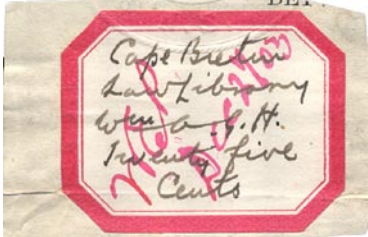 Cape Breton
Law Library
Wm A. G. H.
Twenty five
Cents